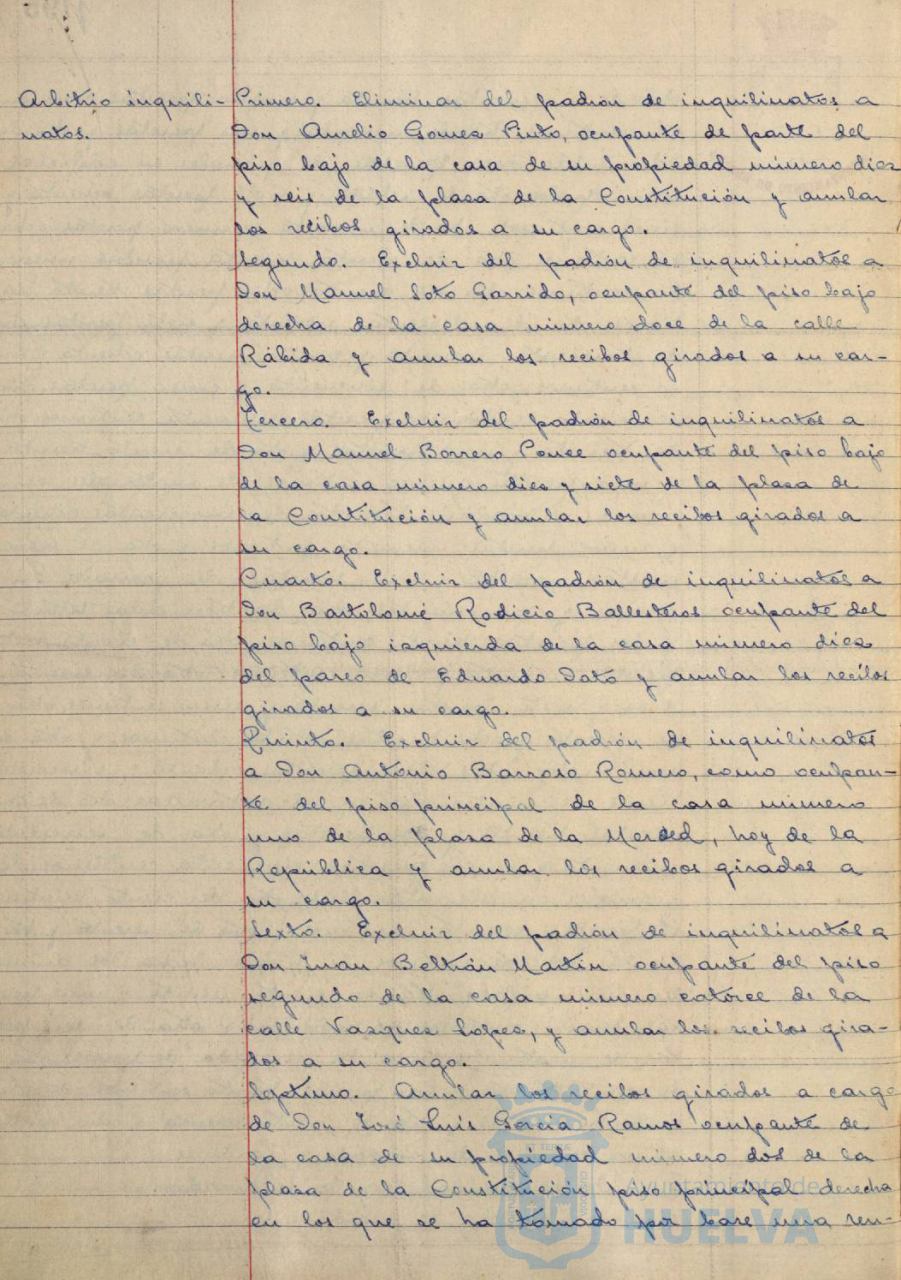 Arbitrio inquili-
natos.
Primero. Eliminar del padrón de inquilinatos a
Don Aurelio Gomez Pinto, ocupante de parte del
piso bajo de la casa de su propiedad número diez
y seis de la plaza de la Constitución y anular
los recibos girados a su cargo.
Segundo. Excluir del padrón de inquilinatos a
Don Manuel Soto Garrido, ocupante del piso bajo
derecha de la casa número doce de la calle
Rábida y anular los recibos girados a su car-
go.
Tercero. Excluir del padrón de inquilinatos a
Don Manuel Borrero Ponce ocupante del piso bajo
de la casa número diez y siete de la plaza de
la Constitución y anular los recibos girados a
su cargo.
Cuarto. Excluir del padrón de inquilinatos a
Don Bartolomé Rodicio Ballesteros ocupante del
piso bajo izquierda de la casa número diez
del paseo de Eduardo Dato y anular los recibos
girados a su cargo.
Quinto. Excluir del padrón de inquilinatos
a Don Antonio Barroso Romero, como ocupan-
te del piso principal de la casa número
uno de la plaza de la Merced, hoy de la
República y anular los recibos girados a
su cargo.
Sexto. Excluir del padrón de inquilinatos a
Don Juan Beltrán Martín ocupante del piso
segundo de la casa número catorce de la
calle Vazquez Lopez, y anular los recibos gira-
dos a su cargo.
Septimo. Anular los recibos girados a cargo
de Don José Luis García Ramos ocupante de
la casa de su propiedad número dos de la
plaza de la Constitución piso principal derecha
en los que se ha tomado por base una ren-
Ayuntamiento de
HUELVA